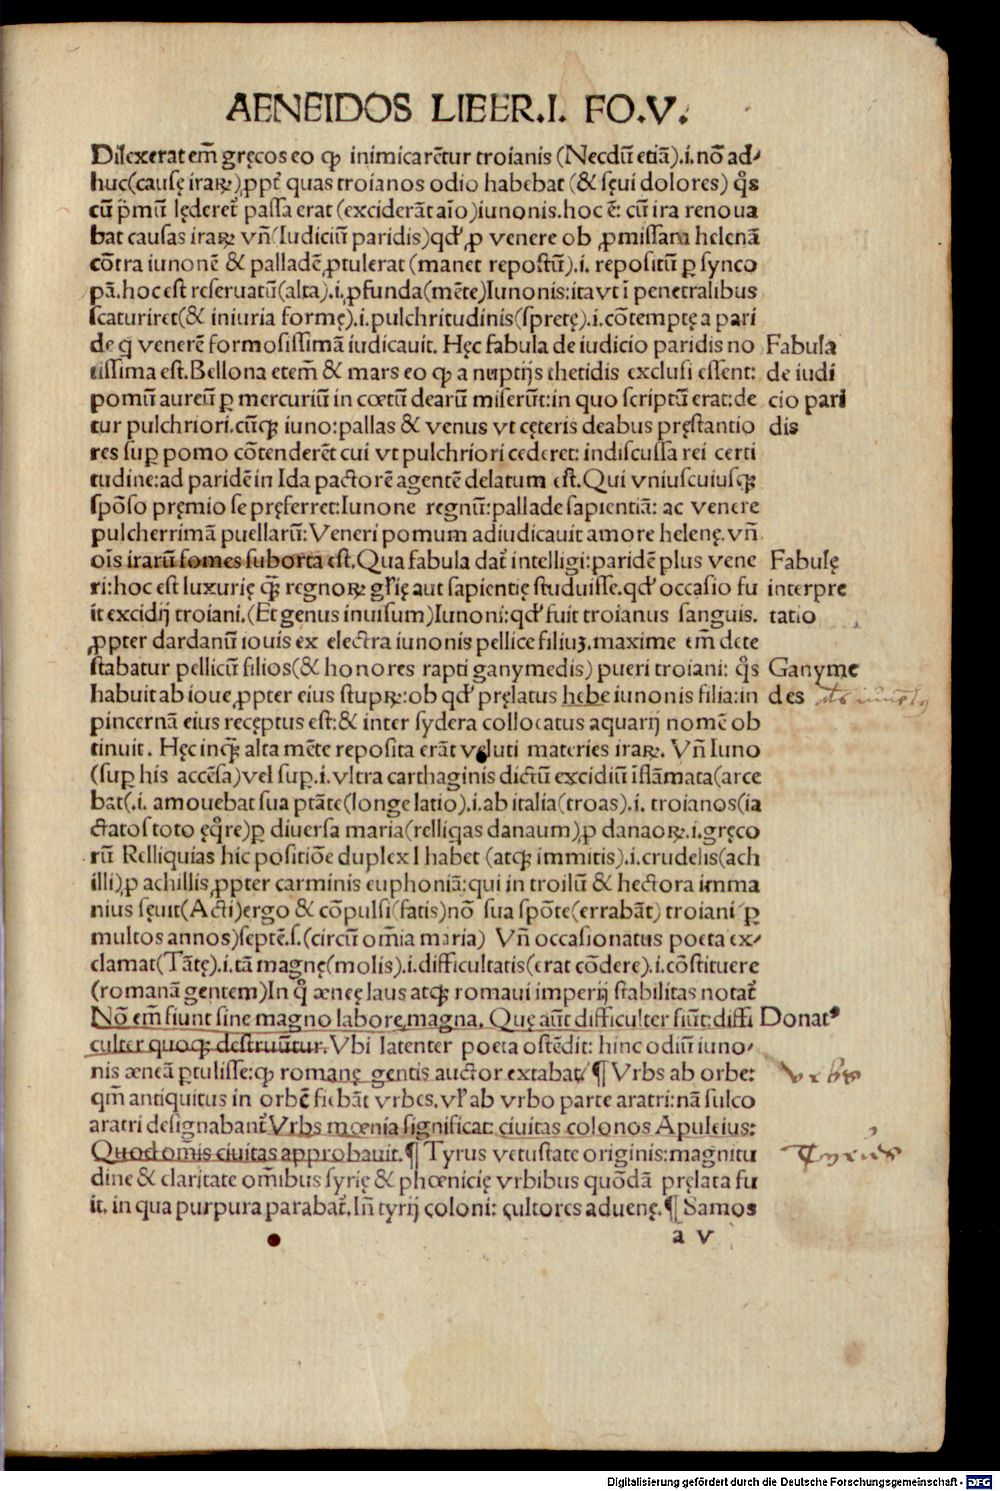 AENEIDOS LIBER.I. FO.V.
Dilexerat em̄ gręcos eo ꝙ inimicarētur troianis (Necdū etiā).i.nō ad⸗
huc(causę iraꝝ),ꝓpt̄ quas troianos odio habebat (& sęui dolores) q̊s
cū p̄mū lęderet̄ passa erat (exciderāt aīo)iunonis.hoc ē: cū ira renoua
bat causas iraꝝ vn̄(Iudiciū paridis)qđ ꝓ venere ob ꝓmissam helenā
cōtra iunonē & palladē ꝓtulerat (manet repostū).i. repositū ꝑ synco
pā.hoc est reseruatū(alta).i.ꝓfunda(mēte)Iunonis:ita vt ī penetralibus
scaturiret(& iniuria formę).i.pulchritudinis(spretę).i.cōtemptę a pari
de q̄ venerē formosissimā iudicauit. Hęc fabula de iudicio paridis no
tissima est.Bellona etem̄ & mars eo ꝙ a nuptijs thetidis exclusi essent:
pomū aureū ꝑ mercuriū in cœtū dearū miserūt:in quo scriptū erat:de
tur pulchriori.cūqꝫ iuno:pallas & venus vt cęteris deabus pręstantio
res suꝑ pomo cōtenderēt cui vt pulchriori cederet: indiscussa rei certi
tudine:ad paridē in Ida pactorē agentē delatum est.Qui vniuscuiusqꝫ
spōso pręmio se pręferret:Iunone regnū:pallade sapientiā: ac venere
pulcherrimā puellarū:Veneri pomum adiudicauit amore helenę.vn̄
oīs irarū fomes suborta est.Qua fabula dat̄ intelligi:paridē plus vene
ri:hoc est luxurię q̄ꝫ regnoꝝ gl̄ię aut sapientię studuisse.qđ occasio fu
it excidij troiani.(Et genus inuisum)Iunoni:qđ fuit troianus sanguis.
ꝓpter dardanū iouis ex electra iunonis pellice filiuꝫ.maxime em̄ dete
stabatur pellicū filios(& honores rapti ganymedis) pueri troiani: q̊s
habuit ab ioue ꝓpter eius stupꝝ:ob qđ pręlatus hebe iunonis filia:in
pincernā eius recęptus est:& inter sydera collocatus aquarij nomē ob
tinuit. Hęc inq̄ꝫ alta mēte reposita erāt veluti materies iraꝝ. Vn̄ Iuno
(suꝑ his accēsa)vel suꝑ.i.vltra carthaginis dictū excidiū īflāmata(arce
bat(.i. amouebat sua ptāte(longe latio).i.ab italia(troas).i. troianos(ia
ctatos toto ęq̊re)ꝑ diuersa maria(relliq̄as danaum),ꝓ danaoꝝ.i.gręco
rū Relliquias hic positiōe duplex l habet (atqꝫ immitis).i.crudelis(ach
illi),ꝓ achillis ꝓpter carminis euphoniā:qui in troilū & hectora imma
nius sęuit(Acti)ergo & cōpulsi(fatis)nō sua spōte(errabāt) troiani ꝑ
multos annos)septē.s.(circū om̄ia maria) Vn̄ occasionatus poeta ex⸗
clamat(Tātę).i.tā magnę(molis).i.difficultatis(erat cōdere).i.cōstituere
(romanā gentem)In q̊ æneę laus atqꝫ romaui imperij stabilitas notat̄
Nō em̄ fiunt sine magno labore magna. Quę aūt difficulter fiūt:diffi
culter quoqꝫ destruūtur.Vbi latenter poeta ostēdit: hinc odiū iuno⸗
nis æneā ꝑtulisse:ꝙ romanę gentis auctor extabat/ ¶ Vrbs ab orbe:
qm̄ antiquitus in orbē fiebāt vrbes, vl̄ ab vrbo parte aratri:nā sulco
aratri designabant̄ Vrbs mœnia significat: ciuitas colonos Apuleius:
Quod om̄is ciuitas approbauit.¶ Tyrus vetustate originis:magnitu
dine & claritate om̄ibus syrię & phœnicię vrbibus quōdā pręlata fu
it. in qua purpura parabat̄. In̄ tyrij coloni: cultores aduenę.¶ Samos
a v
Fabula
de iudi
cio pari
dis
Fabulę
interpre
tatio
Ganyme
des
Donatꝰ
vrbs
Tyrus
Digitalisierung gefördert durch die Deutsche Forschungsgemeinschaft - DFG